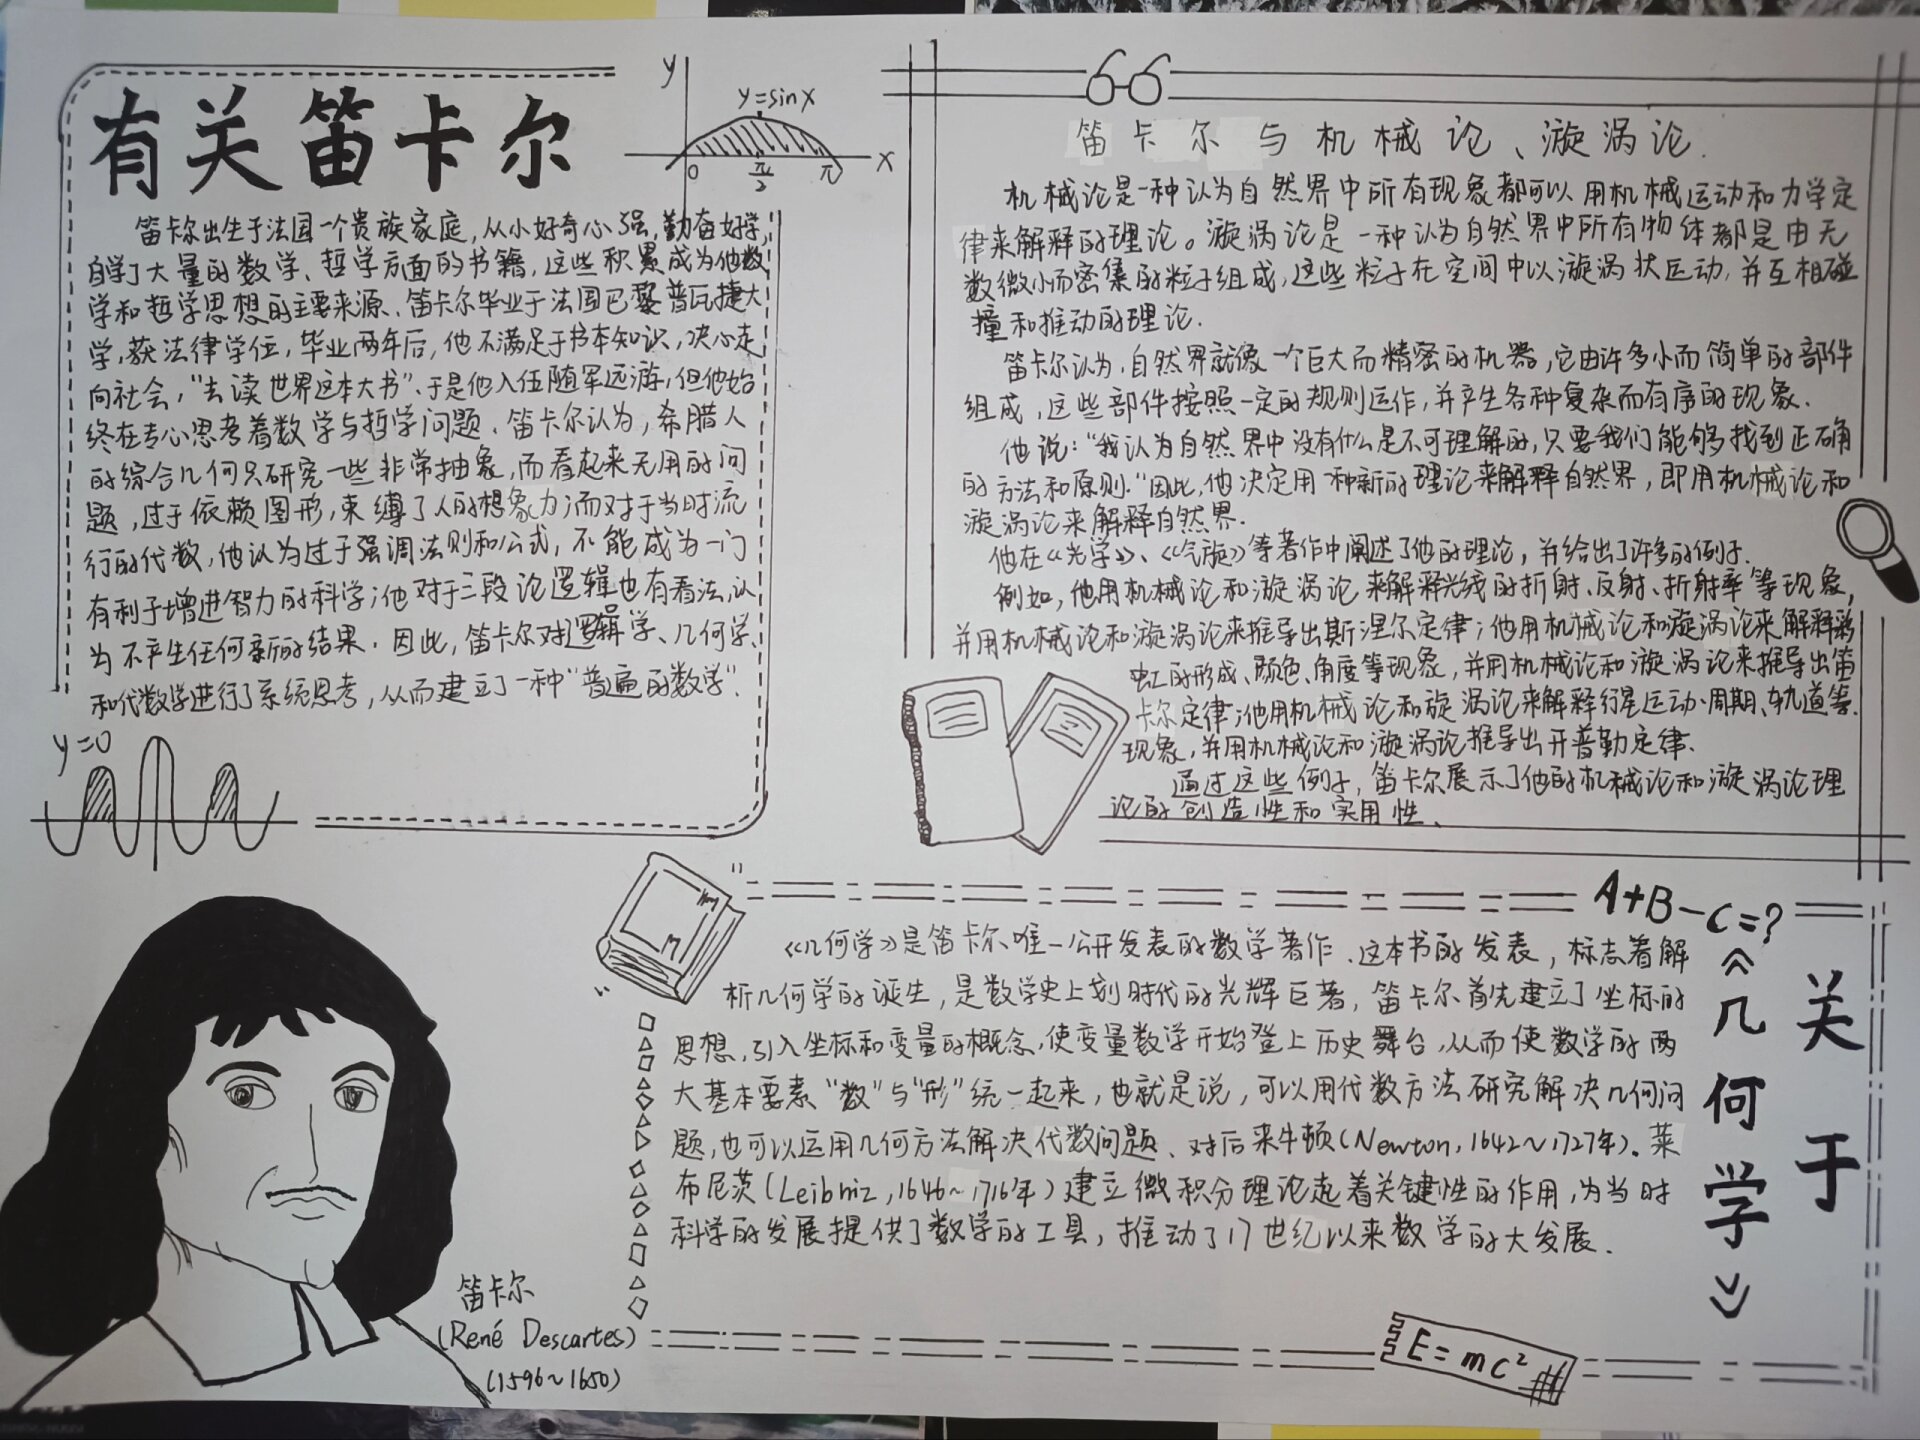 有关笛卡尔
y
y=sinx
0
π/2
π
x
笛卡尔出生于法国一个贵族家庭,从小好奇心强,勤奋好学,
自学了大量的数学、哲学方面的书籍,这些积累成为他数
学和哲学思想的主要来源.笛卡尔毕业于法国巴黎普瓦捷大
学,获法律学位,毕业两年后,他不满足于书本知识,决心走
向社会,"去读世界这本大书".于是他入伍随军远游,但他始
终在专心思考着数学与哲学问题.笛卡尔认为,希腊人
的综合几何只研究一些非常抽象,而看起来无用的问
题,过于依赖图形,束缚了人的想象力;而对于当时流
行的代数,他认为过于强调法则和公式,不能成为一门
有利于增进智力的科学;他对于三段论逻辑也有看法,认
为不产生任何新的结果.因此,笛卡尔对逻辑学、几何学、
和代数学进行了系统思考,从而建立了一种"普遍的数学".
y=0
笛卡尔与机械论、漩涡论.
机械论是一种认为自然界中所有现象都可以用机械运动和力学定
律来解释的理论。漩涡论是一种认为自然界中所有物体都是由无
数微小而密集的粒子组成,这些粒子在空间中以漩涡状运动,并互相碰
撞和推动的理论.
笛卡尔认为,自然界就像一个巨大而精密的机器,它由许多小而简单的部件
组成,这些部件按照一定的规则运作,并产生各种复杂而有序的现象.
他说:"我认为自然界中没有什么是不可理解的,只要我们能够找到正确
的方法和原则."因此,他决定用一种新的理论来解释自然界,即用机械论和
漩涡论来解释自然界.
他在《光学》、《气旋》等著作中阐述了他的理论,并给出了许多的例子.
例如,他用机械论和漩涡论来解释光线的折射、反射、折射率等现象,
并用机械论和漩涡论来推导出斯涅尔定律;他用机械论和漩涡论来解释彩
虹的形成、颜色、角度等现象,并用机械论和漩涡论来推导出笛
卡尔定律;他用机械论和旋涡论来解释行星运动、周期、轨道等
现象,并用机械论和漩涡论推导出开普勒定律.
通过这些例子,笛卡尔展示了他的机械论和漩涡论理
论的创造性和实用性.
A+B-C=?
关于
《几何学》
《几何学》是笛卡尔唯一公开发表的数学著作.这本书的发表,标志着解
析几何学的诞生,是数学史上划时代的光辉巨著,笛卡尔首先建立了坐标的
思想,引入坐标和变量的概念,使变量数学开始登上历史舞台,从而使数学的两
大基本要素"数"与"形"统一起来,也就是说,可以用代数方法研究解决几何问
题,也可以运用几何方法解决代数问题.对后来牛顿(Newton,1642~1727年)、莱
布尼茨(Leibniz,1646~1716年)建立微积分理论起着关键性的作用,为当时
科学的发展提供了数学的工具,推动了17世纪以来数学的大发展.
笛卡尔
(René Descartes)
(1596~1650)
E=mc²